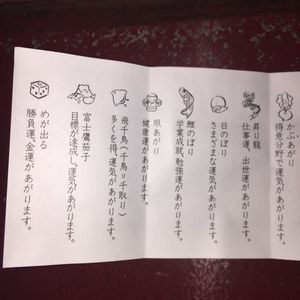 かぶあがり
得意分野で運気があがります。
昇り龍
仕事運、出世運があがります。
日のぼり
さまざまな運気があがります。
鯉のぼり
学業成就、勉強運があがります。
凧あがり
健康運があがります。
飛千鳥(千鳥=千取り)
多くを得、運気があがります。
富士鷹茄子
目標が達成し、運気があがります。
めが出る
勝負運、金運があがります。